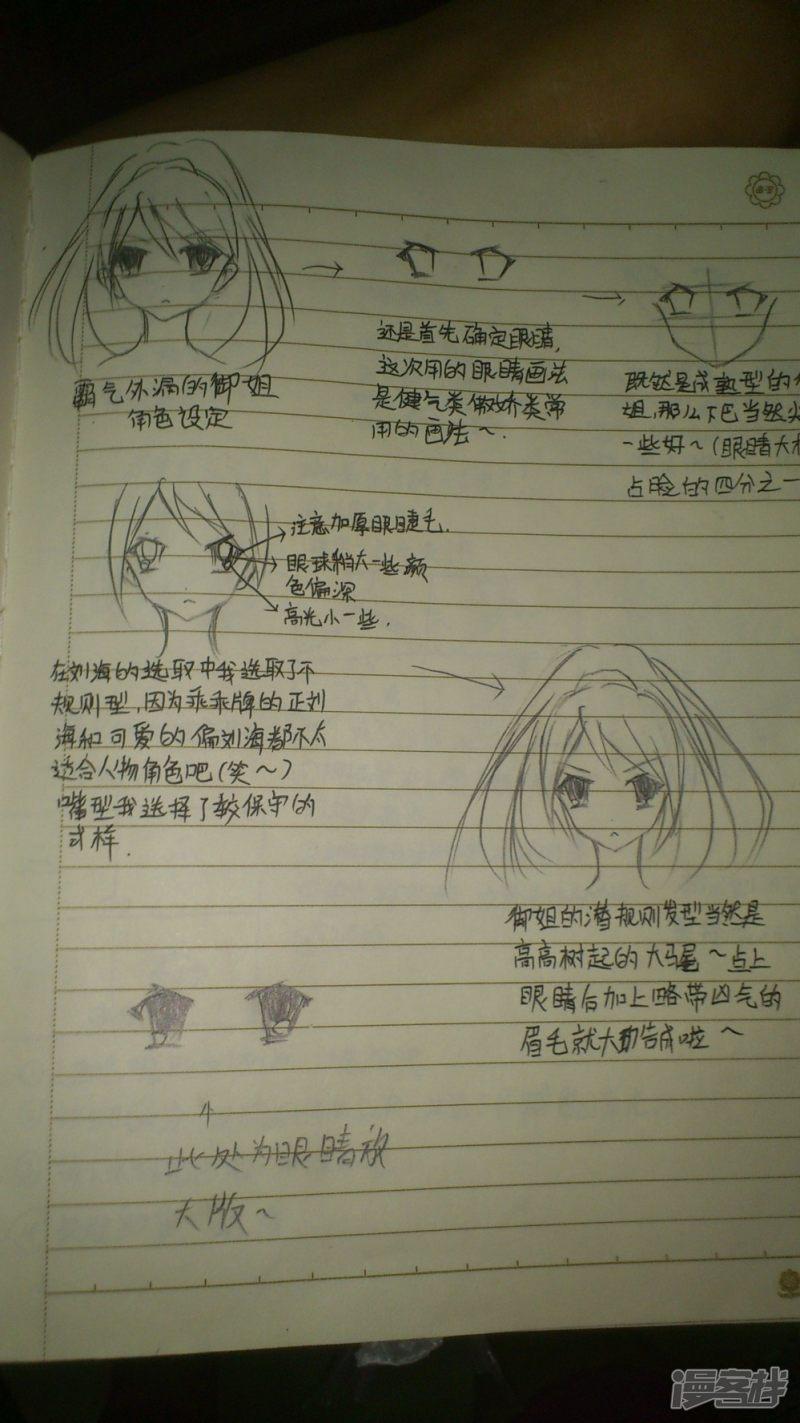 霸气外漏的御姐
角色设定
还是首先确定眼睛,
这次用的眼睛画法
是健气类傲娇类常
用的画法~.
既然是成熟型的
姐,那么下巴当然尖
一些好~(眼睛大
占脸的四分之一
注意加厚眼睫毛.
眼球稍大一些颜
色偏深
高光小一些.
在刘海的选取中我选取了不
规则型,因为乖乖牌的正刘
海和可爱的偏刘海都不太
适合人物角色吧(笑~)
嘴型我选择了较保守的
式样.
御姐的潜规则发型当然是
高高树起的大马尾~点上
眼睛后加上略带凶气的
眉毛就大功告成啦~
此处为眼睛放
大版~
漫客栈